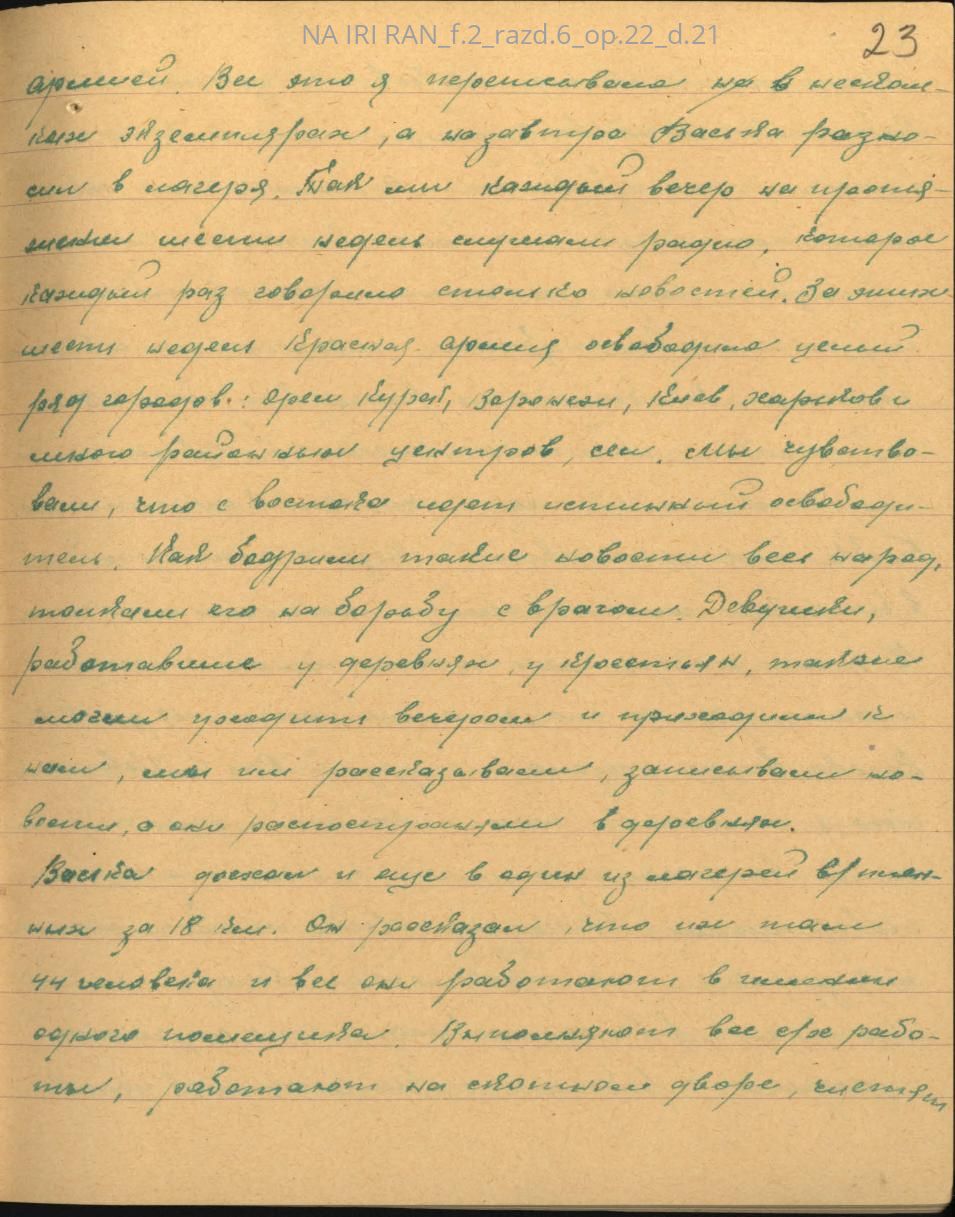 NA IRI RAN_f.2_razd.6_op.22_d.21
23
армией. Все это я переписывала на в несколь-
ких экземплярах, а назавтра Васька разно-
сил в лагеря. Так мы каждый вечер на протя-
жении шести недель слушали радио, которое
каждый раз говорило столько новостей. За эти
шесть недель Красная армия освободила целый
ряд городов: Орел Курск, Воронеж, Киев, Харьков и
много районных центров, сел. Мы чувство-
вали, что с востока идет истинный освободи-
тель. Как бодрили такие новости весь народ,
толкали его на борьбу с врагом. Девушки,
работавшие у деревнях, у крестьян, также
могли уходить вечером и приходили к
нам, мы им рассказывали, записывали но-
вости, а они распостраняли в деревнях.
Васька доехал и еще в один из лагерей в/плен-
ных за 18 км. Он рассказал, что их там
44 человека и все они работают в имении
одного помещика. Выполняют все с/х рабо-
ты, работают на скотном дворе, чистят